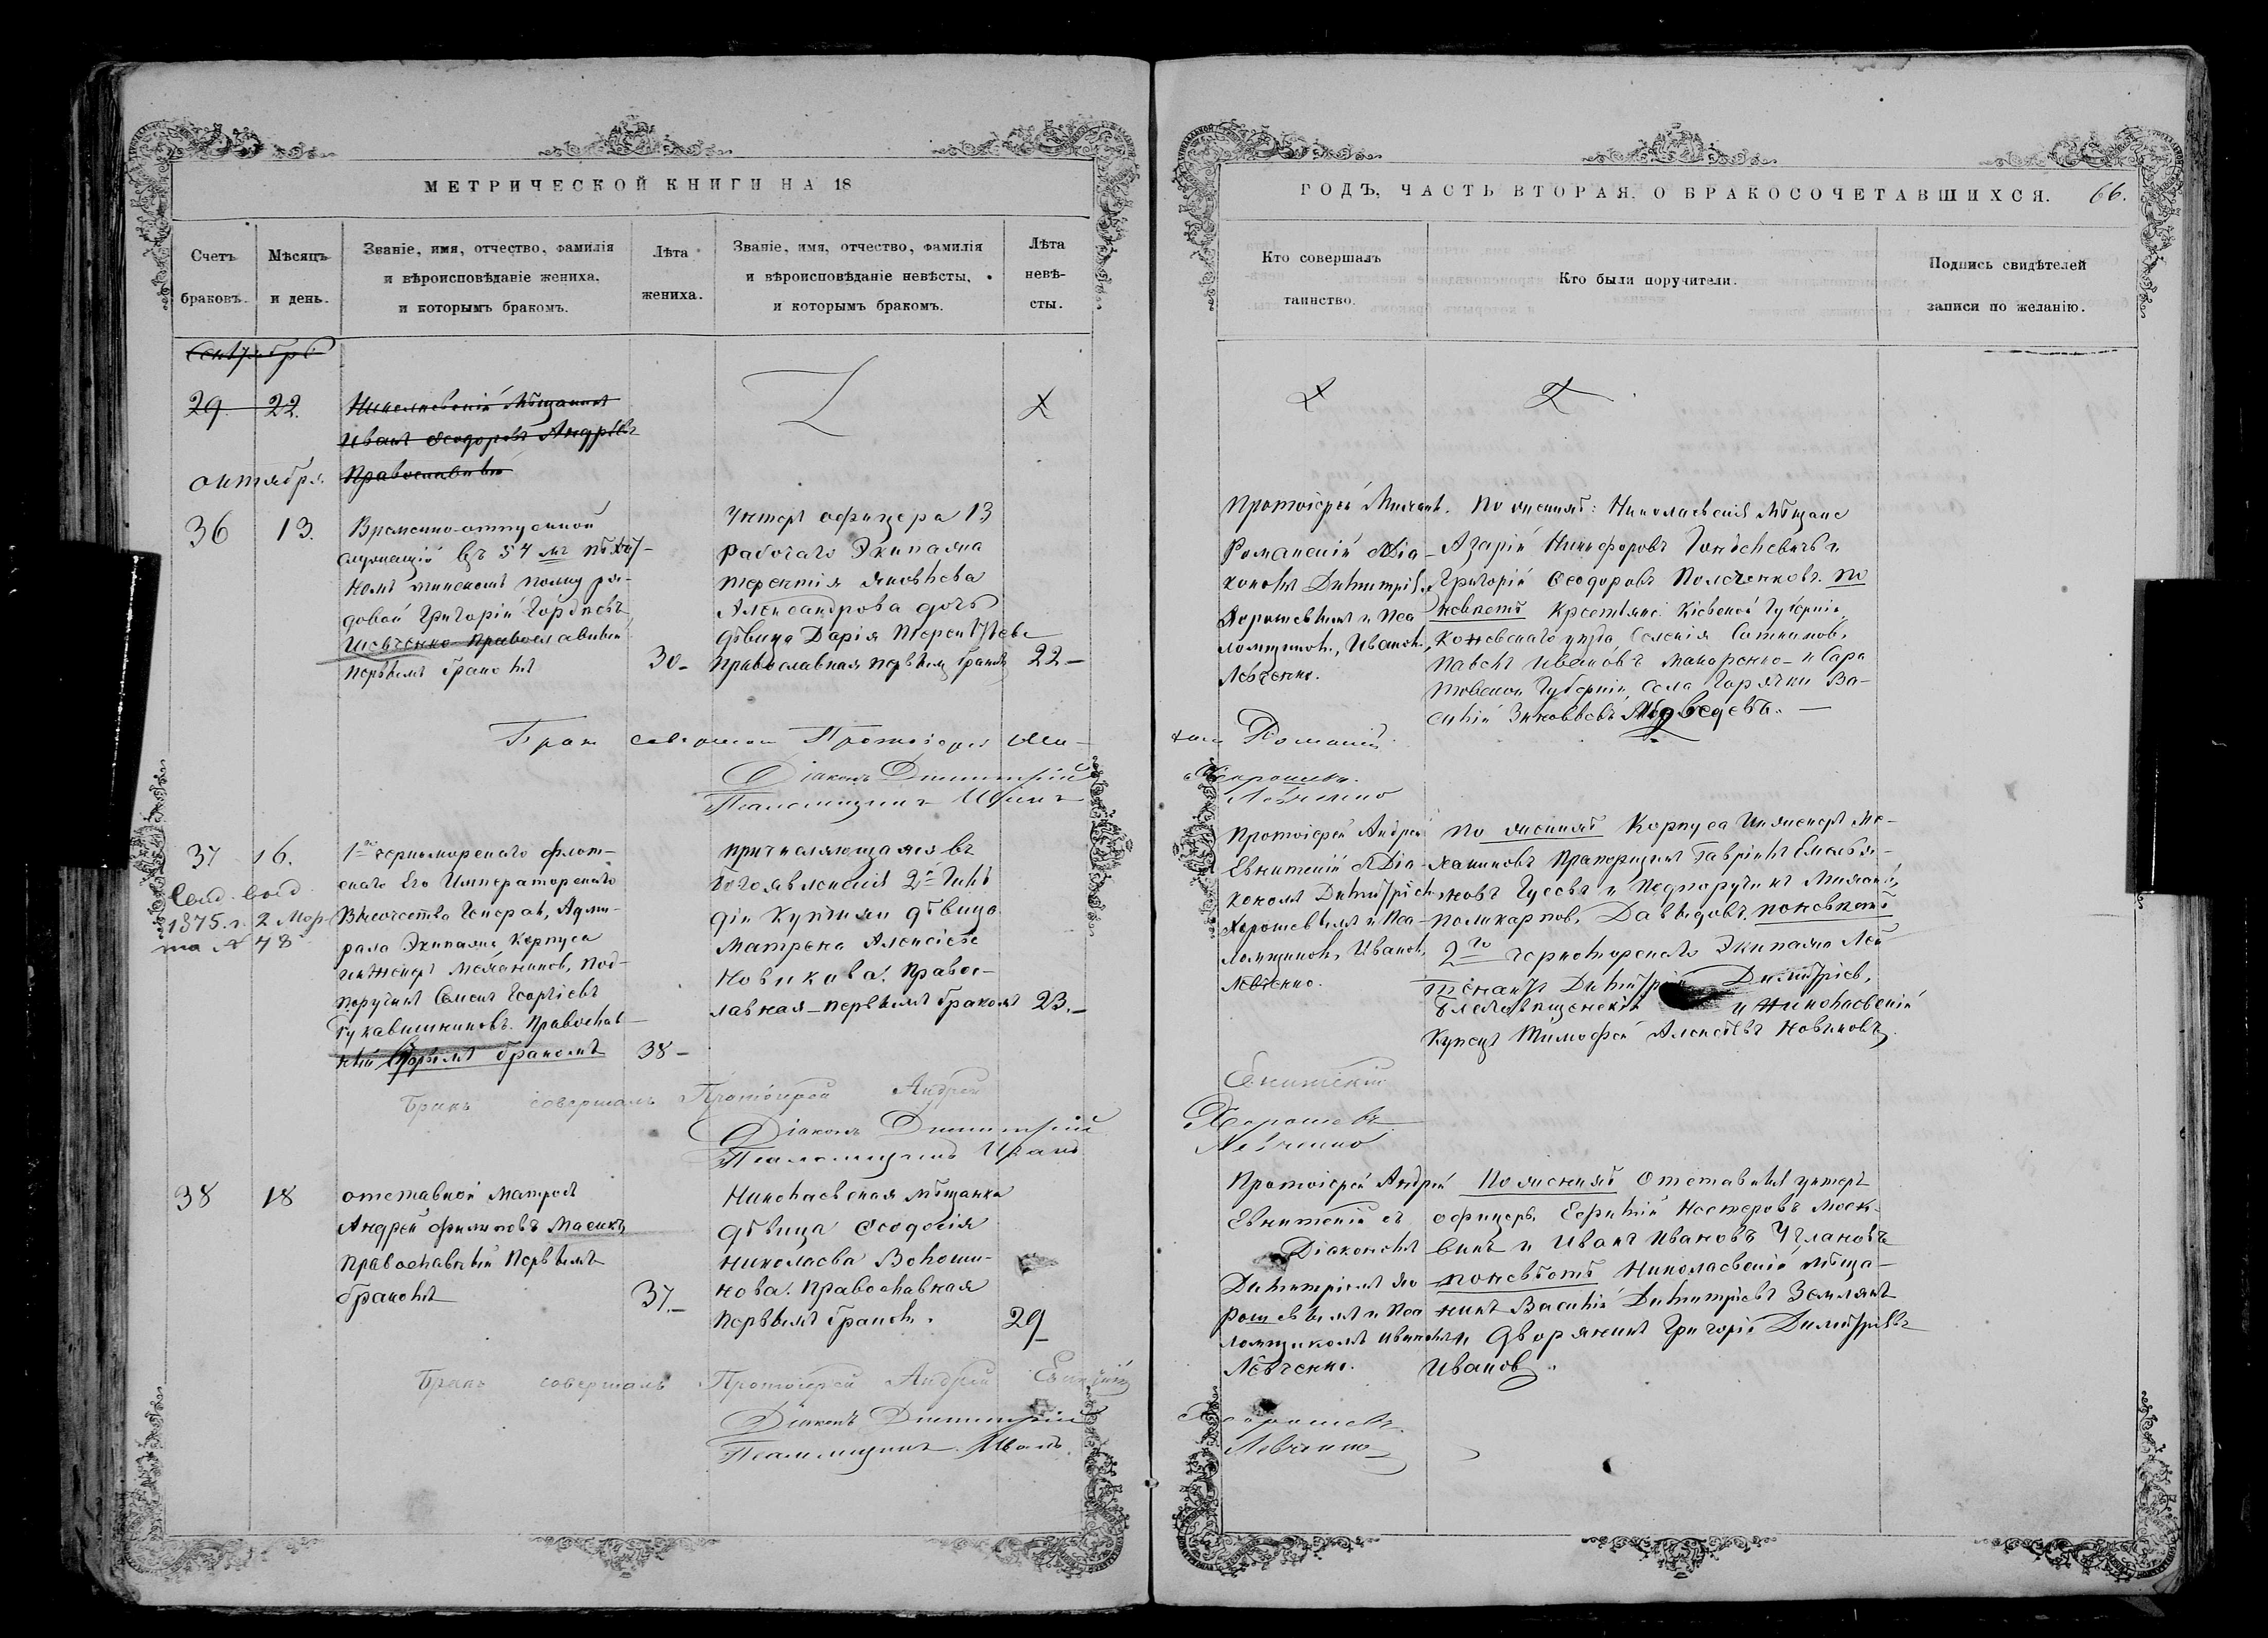 МЕТРИЧЕСКОЙ КНИГИ НА 18
Счетъ браковъ.
Мѣсяцъ и день.
Званіе, имя, отчество, фамилія
и вѣроисповѣданіе жениха,
и которымъ бракомъ.
Лѣта
жениха.
Званіе, имя, отчество, фамилія
и вѣроисповѣданіе невѣсты,
и которымъ бракомъ.
Лѣта
невѣ-
сты.
Сентябрь
29. 22.
Николаевскій Мѣщанинъ
Иванъ Ѳеодоровъ Андрѣевъ
Православный
октября.
36 13.
Временно-отпускной
служащій въ 54 мъ пѣхот-
номъ минскомъ полку ря-
довой Григорій Гордѣевъ
Шевченко Православный
первымъ бракомъ
30-
Унтеръ офицера 13
рабочаго Экипажа
терентія Яковлева
Александрова дочь
дѣвица Дарія Терентьева
Православная первымъ бракомъ
22-
Бракъ совершалъ Протоіерей Ми-
Діаконъ Димитрій
Псаломщикъ Иванъ
37 16.
1875 г. 2 Мар-
та № 48
1го черноморскаго флот-
скаго Его Императорскаго
Высочества Генералъ, Адми-
рала Экипажа Корпуса
инженеръ механиковъ, Под-
поручикъ Семенъ Георгіевъ
Рукавишниковъ. Православ-
ный вторымъ бракомъ
38-
причисляющаяся въ
Богоявленскія 2й Гиль
діи Купчихи дѣвица
Матрена Алексіева
Новикова. Правос-
лавная-первымъ бракомъ
23.-
Бракъ совершалъ Протоіерей Андрей
Діаконъ Димитрій
Псаломщикъ Иванъ
38 18
отставной Матросъ
Андрей Филиповъ Масикъ
Православный Первымъ
бракомъ
37.-
Николаевская мѣщанка
дѣвица Ѳеодосія
Николаева Волоши-
нова. Православная
Первымъ бракомъ.
29
Бракъ совершалъ Протоіерей Андрей Евнитскій
Діаконъ Димитрій
Псаломщикъ Иванъ
ГОДЪ, ЧАСТЬ ВТОРАЯ, О БРАКОСОЧЕТАВШИХСЯ. 66.
Кто совершалъ
таинство.
Кто были поручители.
Подпись свидѣтелей
записи по желанію.
Протоіерей Михаилъ
Романскій съ Діа-
кономъ Димитріемъ
Хорошевымъ и Пса
ломщикомъ, Иваномъ,
Левченко.
По женихѣ: Николаевскія Мѣщане
Азарій Никифоровъ
Григорій Ѳеодоровъ Полстенковъ. по
невѣстѣ Крестьяне: Кіевской Губерніи,
Каневскаго уѣзда Селенія
Павелъ Ивановъ Макаренко- и Сара
товской Губерніи, Села Горячки Ва-
силій Зиновьевъ Медведевъ.-
хаилъ Романскій
Хорошевъ.
Левченко
Протоіерей Андрей
Евнитскій съ Діа-
кономъ Димитріемъ
Хорошевымъ и Пса-
ломщикомъ, Иваномъ,
Левченко.
По женихѣ Корпуса Инженеръ Ме-
ханиковъ Прапорщикъ Гавріилъ Емелья-
новъ Гусевъ и Подпоручикъ Михаилъ
Поликарповъ, Давыдовъ. поневѣстѣ
2го черноморскаго Экипажа Лей-
тенантъ Димитрій Димитріевъ,
Благовѣщенскій и Николаевскій
Купецъ Тимофей Алексѣевъ Новиковъ.
Евнитскій
Хорошевъ
Левченко
Протоіерей Андрей
Евнитскій съ
Діакономъ
Димитріемъ Хо
рошевымъ и Пса
ломщикомъ Иваномъ
Левченко.
По женихѣ отставныя унтеръ
офицеры. Ефимій Нестеровъ Моск-
винъ и Иванъ Ивановъ Углановъ
поневѣстѣ Николаевскій мѣща-
нинъ Василій Димитріевъ Землянъ
и Дворянинъ Григорій Димитріевъ
Ивановъ.
Хорошевъ
Левченко